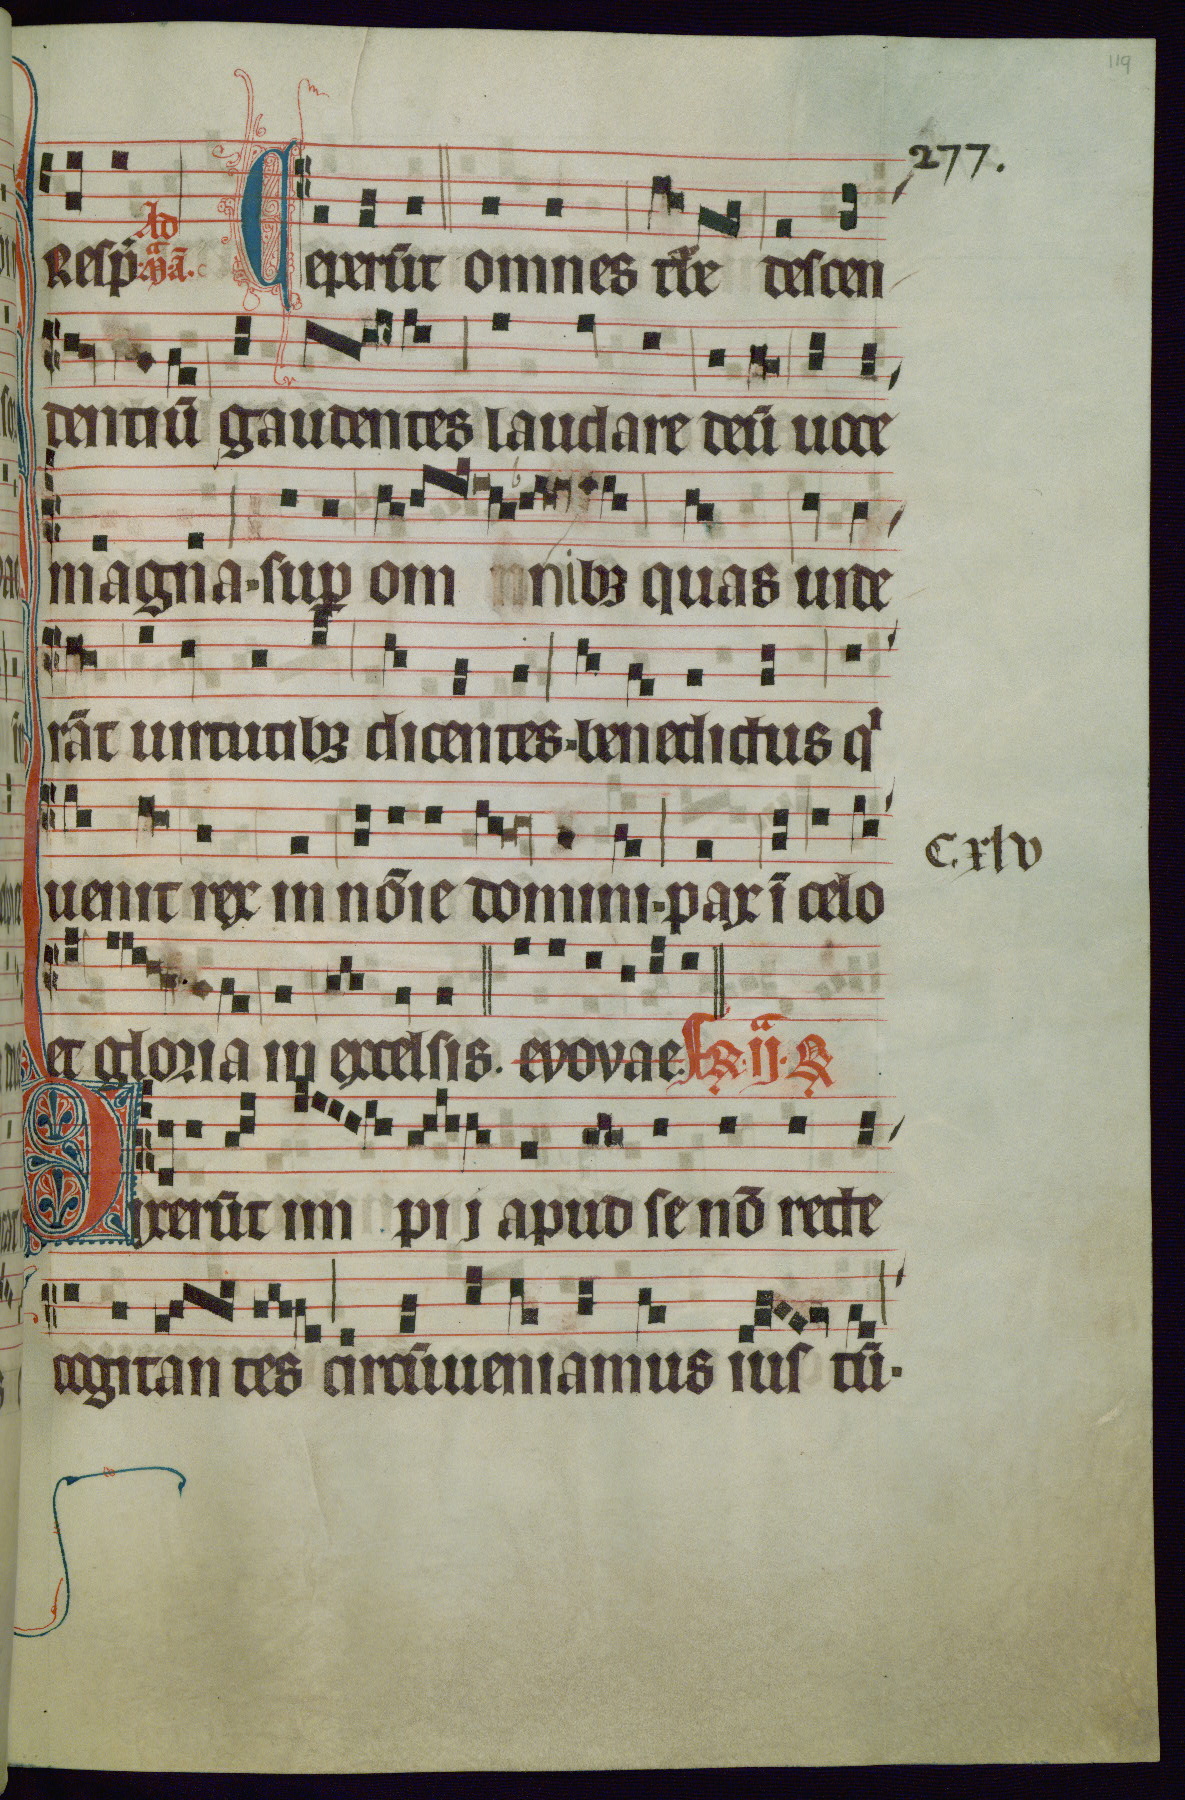 119
277.
Resp̄. Ad mā. Ceperūt omnes tr̄e descen
dentiū gaudentes laudare deū uoce
magna. sup̱ om nibꝫ quas uide
rāt uirtutibꝫ dicentes. benedictus qͥ
uenit rex in nōie domini. pax ī celo
C. xlv
et gloria in excelsis. evovae. fꝶ. ij. ꝶ
Dixerūt im pij apud se nō recte
cogitan tes circūueniamus ius tū.